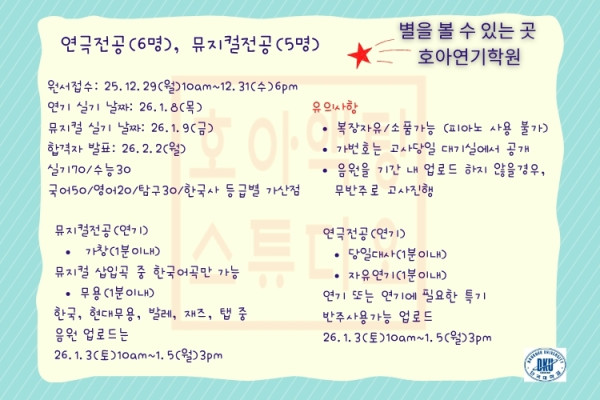 연극전공(6명), 뮤지컬전공(5명)
별을 볼 수 있는 곳
호아연기학원
원서접수: 25.12.29(월)10am~12.31(수)6pm
연기 실기 날짜: 26.1.8(목)
뮤지컬 실기 날짜: 26.1.9(금)
합격자 발표: 26.2.2(월)
실기70/수능30
국어50/영어20/탐구30/한국사 등급별 가산점
유의사항
• 복장자유/소품가능 (피아노 사용 불가)
• 가번호는 고사당일 대기실에서 공개
• 음원을 기간 내 업로드 하지 않을경우,
무반주로 고사진행
뮤지컬전공(연기)
• 가창(1분이내)
뮤지컬 삽입곡 중 한국어곡만 가능
• 무용(1분이내)
한국, 현대무용, 발레, 재즈, 탭 중
음원 업로드는
26.1.3(토)10am~1.5(월)3pm
연극전공(연기)
• 당일대사(1분이내)
• 자유연기(1분이내)
연기 또는 연기에 필요한 특기
반주사용가능 업로드
26.1.3(토)10am~1.5(월)3pm
호아악팅
스튜디오
DANKOOK UNIVERSITY
DKU